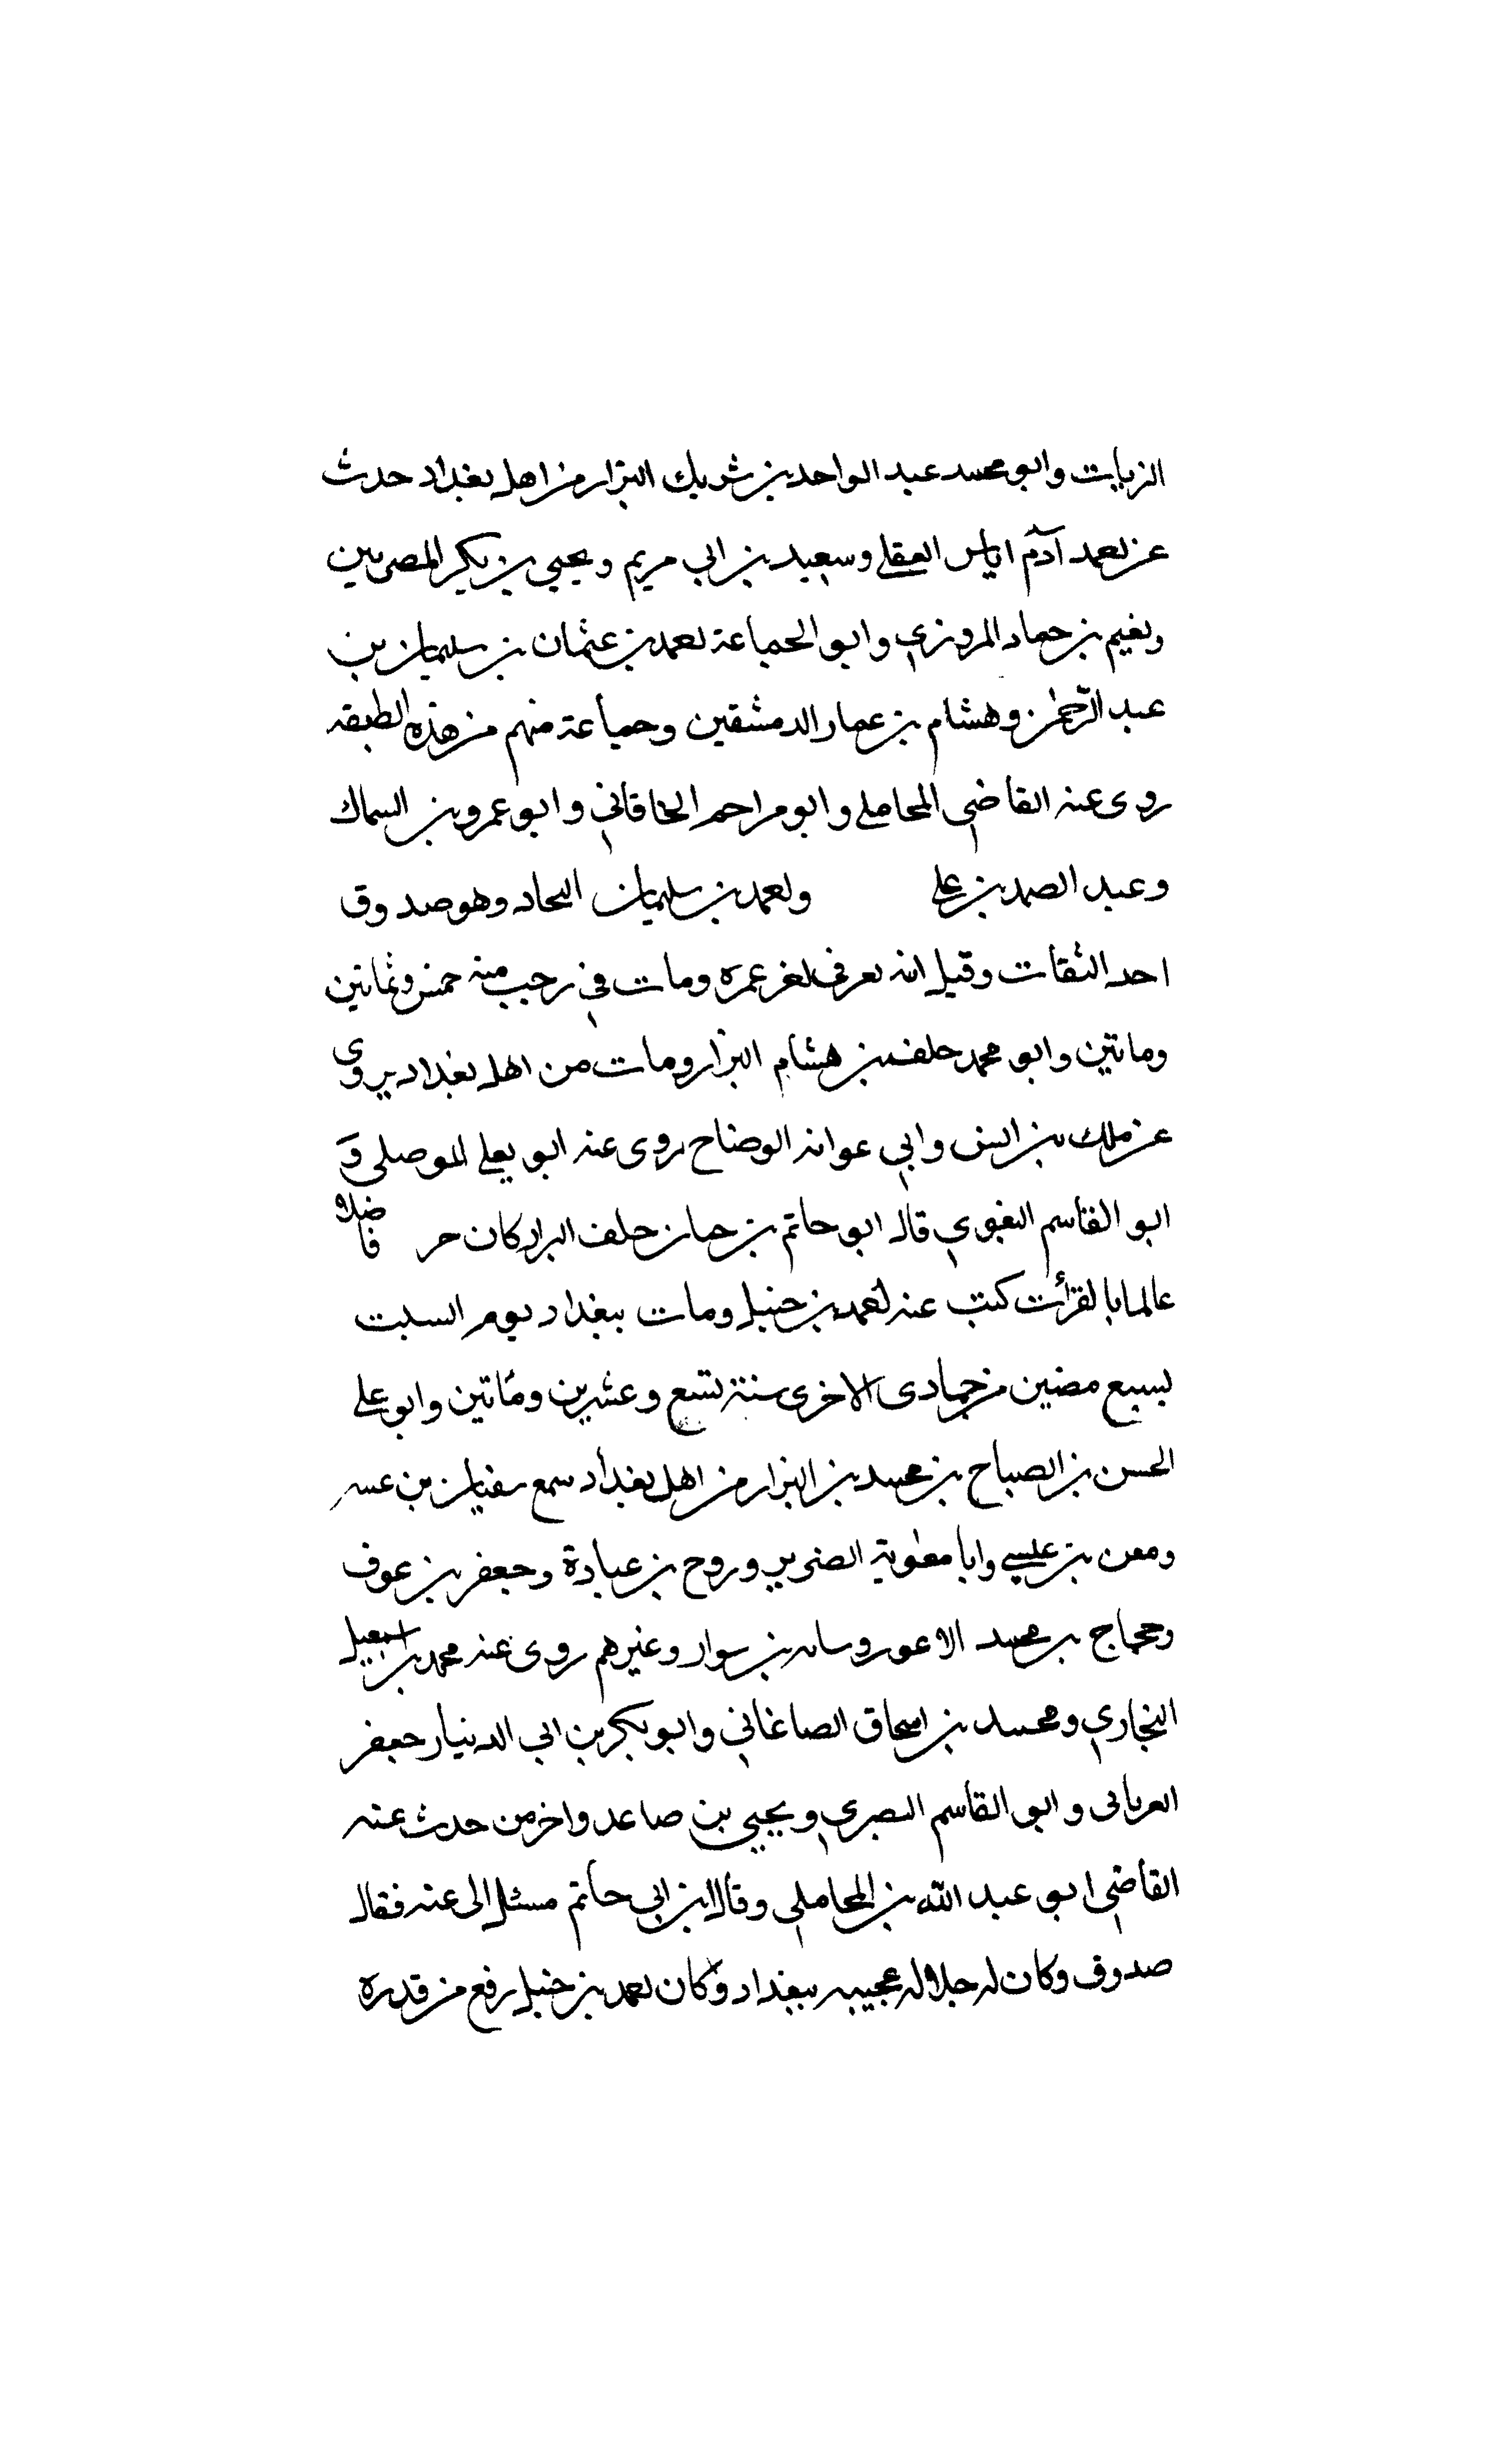 الزيات وابو محمد عبد الواحد بن شريك البزار من اهل بغداد حدث
عن احمد آدم اياس العقلي وسعيد بن ابي مريم ويحيي بن بكر المصريين
ونعيم بن حماد المروزي وابو الجماعة احمد بن عثمان بن سليمان بن
عبد الرحمن وهشام بن عمار الدمشقين وجماعة منهم من هذه الطبقه
روى عنه القاضي المحاملي وابو مراحم الخاقاني وابو عمرو بن السماك
وعبد الصمد بن علي واحمد بن سليمان النجاد وهو صدوق
احد الثقات وقيل انه تعر في اخر عمره ومات في رجب سنه خمس وثمانين
وماتين وابو محمد خلف بن هشام البزار ومات من اهل بغداد يروى
عن ملك بن انس وابي عوانه الوضاح روى عنه ابو يعلي الموصلي و
ابو القاسم البغوي قال ابو حاتم بن حبان خلف البزار كان خر فاضلا
عالما بالقرأت كتب عنه احمد بن حنبل ومات ببغداد يوم السبت
لسبع مضين من جمادى الاخرى سنة تسع وعشرين ومأتين وابو علي
الحسن بن الصباح بن محمد بن البزار من اهل بغداد سمع سفيان بن عسه
ومعن بن عيسي وابا معوية الضرير وروح بن عبادة وجعفر بن عوف
وحجاج بن محمد الاعور وسابه بن سوار وغيرهم روى عنه محمد بن اسمعيل
البخاري ومحمد بن اسحاق الصاغاني وابو بكر بن ابي الدنيا وجعفر
العربابى وابو القاسم البصري ويحيي بن صاعد واخر من حدث عنه
القاضي ابو عبد الله بن المحاملي وقال ابن ابي حاتم مسئل ابى عنه فقال
صدوق وكان له جلاله عجيبه ببغداد وكان احمد بن حنبل رفع من قدره